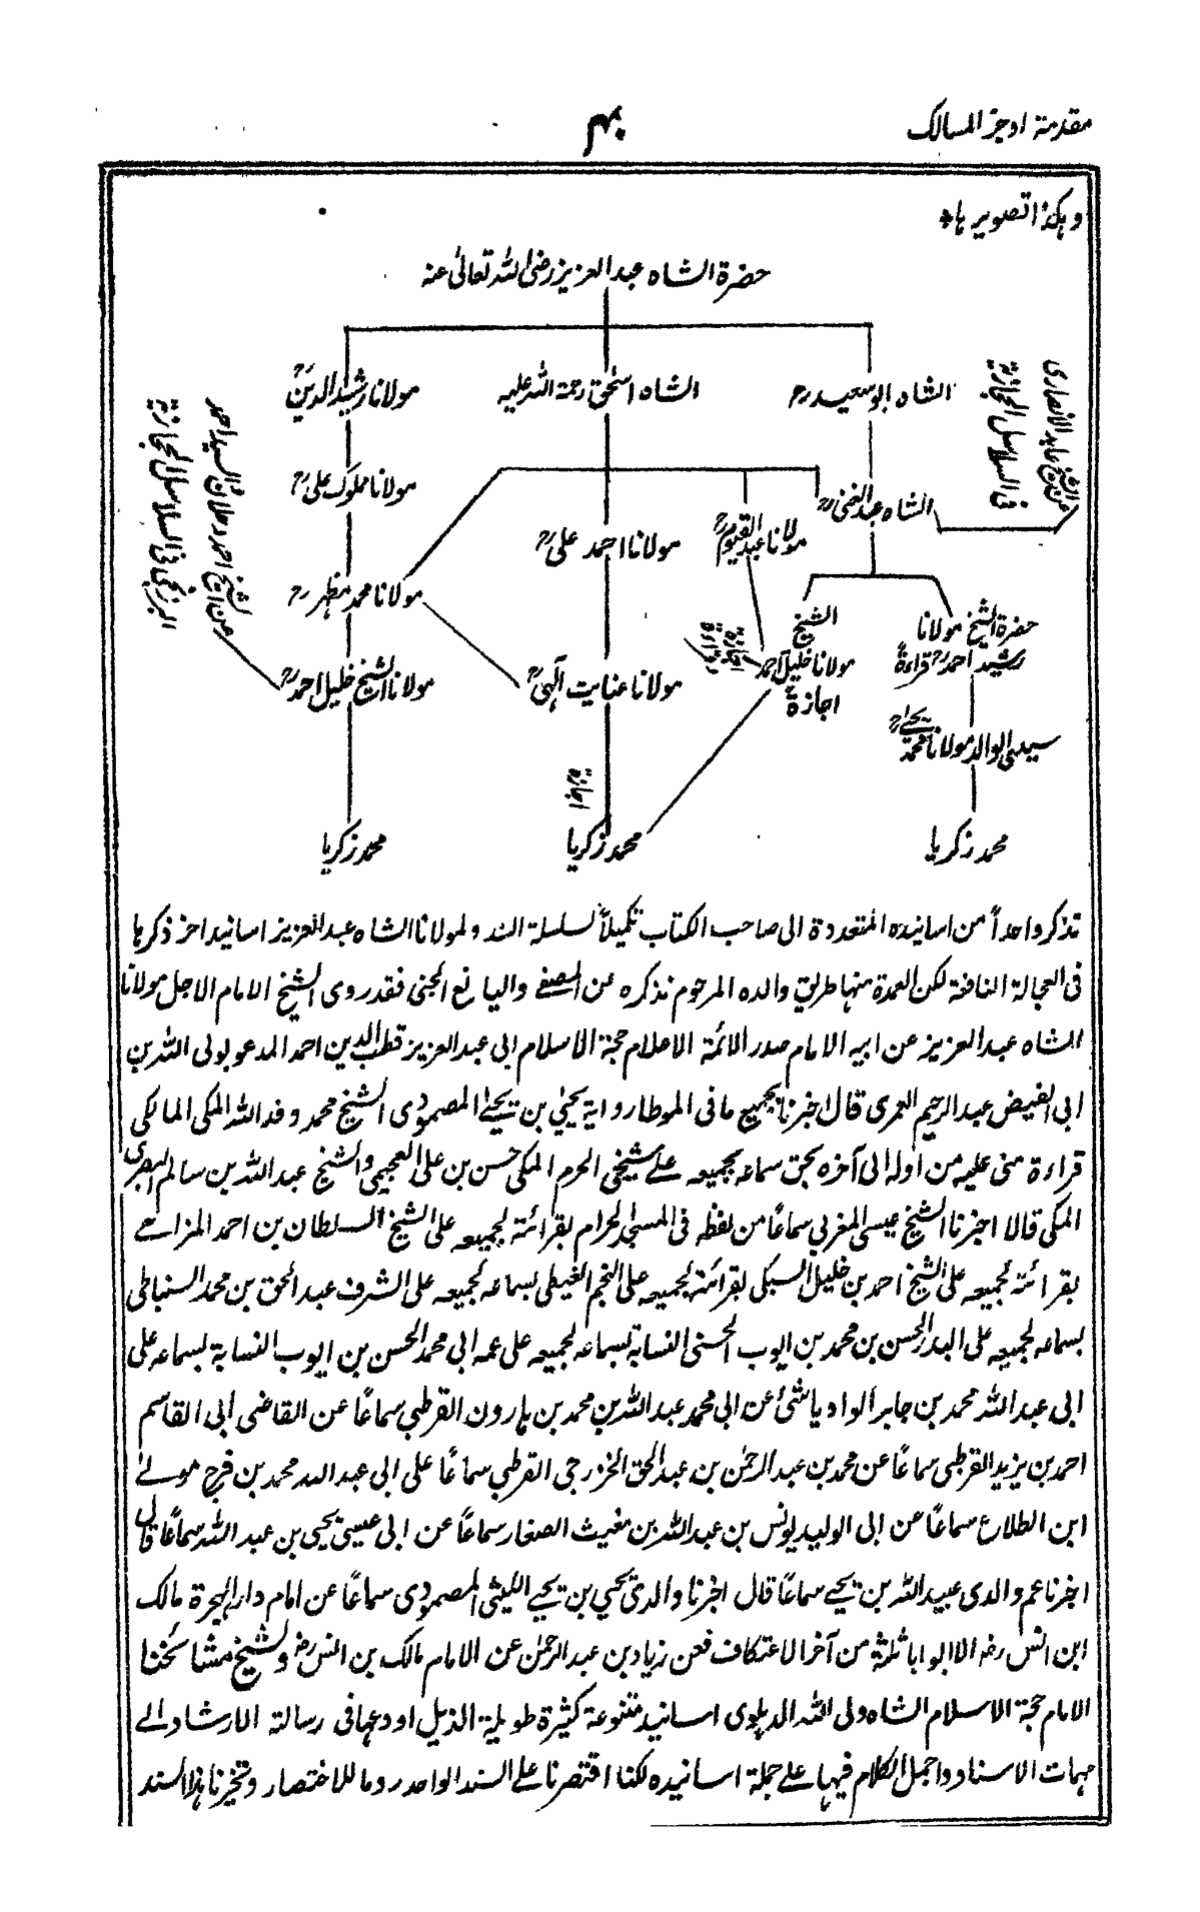 مقدمة اوجز المسالک
۴۰
وهكذا تصويرها*
حضرة الشاه عبد العزيز رضى الله تعالىٰ عنه
الشاه ابو سعيد رح
الشاه اسحٰق رحمة الله عليه
مولانا رشيد الدين رح
عن الشيخ عابد الانصارى
فى السلاسل الحجازية
الشيخ احمد دحلان السيد احمد
عن الشيخ
البرزنجى فى السلاسل الحجازية
مولانا مملوک على رح
الشاه عبد الغنى رح
مولانا عبد القيوم رح
مولانا احمد على رح
مولانا محمد مظهر رح
حضرة الشيخ مولانا
رشيد احمد رح قراءة
الشيخ
مولانا خليل احمد
اجازة
قراءة
اجازة
مولانا عنايت الٰهى رح
مولانا الشيخ خليل احمد رح
سيدى الوالد مولانا محمد يحيىٰ رح
اجازة
محمد زكريا
محمد زكريا
محمد زكريا
تذكر واحداً من اسانيده المتعددة الى صاحب الكتاب تكميلاً لسلسلة السند ولمولانا الشاه عبد العزيز اسانيد اخر ذكرها
فى العجالة النافعة لكن العمدة منها طريق والده المرحوم نذكره عن المصفى واليانع الجنى فقد روى الشيخ الامام الاجل مولانا
الشاه عبد العزيز عن ابيه الامام صدر الائمة الاعلام حجة الاسلام ابى عبد العزيز قطب الدين احمد المدعو بولى الله بن
ابى الفيض عبد الرحيم العمرى قال اخبرنا بجميع ما فى الموطا رواية يحيىٰ بن يحيىٰ المصمودى الشيخ محمد وفد الله المكى المالكى
قراءة منى عليه من اوله الى آخره بحق سماعه بجميعه على شيخى الحرم المكى حسن بن على العجيمى والشيخ عبد الله بن سالم البصرى
المكى قالا اخبرنا الشيخ عيسى المغربى سماعًا من لفظه فى المسجد الحرام بقرائته لجميعه على الشيخ السلطان بن احمد المزاحى
بقرائته لجميعه على الشيخ احمد بن خليل السبكى بقرائته لجميعه على النجم الغيطى بسماعه لجميعه على الشرف عبد الحق بن محمد السنباطى
بسماعه لجميعه على البدر الحسن بن محمد بن ايوب الحسنى النسابة بسماعه لجميعه على عمه ابى محمد الحسن بن ايوب النسابة بسماعه على
ابى عبد الله محمد بن جابر الوادياشئ عن ابى محمد عبد الله بن محمد بن هارون القرطبى سماعًا عن القاضى ابى القاسم
احمد بن يزيد القرطبى سماعًا عن محمد بن عبد الرحمٰن بن عبد الحق الخزرجى القرطبى سماعًا على ابى عبد الله محمد بن فرج مولىٰ
ابن الطلاع سماعًا عن ابى الوليد يونس بن عبد الله بن مغيث الصفار سماعًا عن ابى عيسى يحيى بن عبد الله سماعًا قال
اخبرنا عم والدى عبيد الله بن يحيىٰ سماعًا قال اخبرنا والدى يحيى بن يحيىٰ الليثى المصمودى سماعًا عن امام دار الهجرة مالک
ابن انس رضه الا ابوابا ثلثة من آخر الاعتكاف فعن زياد بن عبد الرحمٰن عن الامام مالک بن انس رضه ولشيخ مشائخنا
الامام حجة الاسلام الشاه ولى الله الدهلوى اسانيد متنوعة كثيرة طويلة الذيل اودعها فى رسالة الارشاد الى
مهمات الاسناد واجمل الكلام فيها على جملة اسانيده لكنا اقتصرنا على السند الواحد روما للاختصار وتخيرنا هذا السند